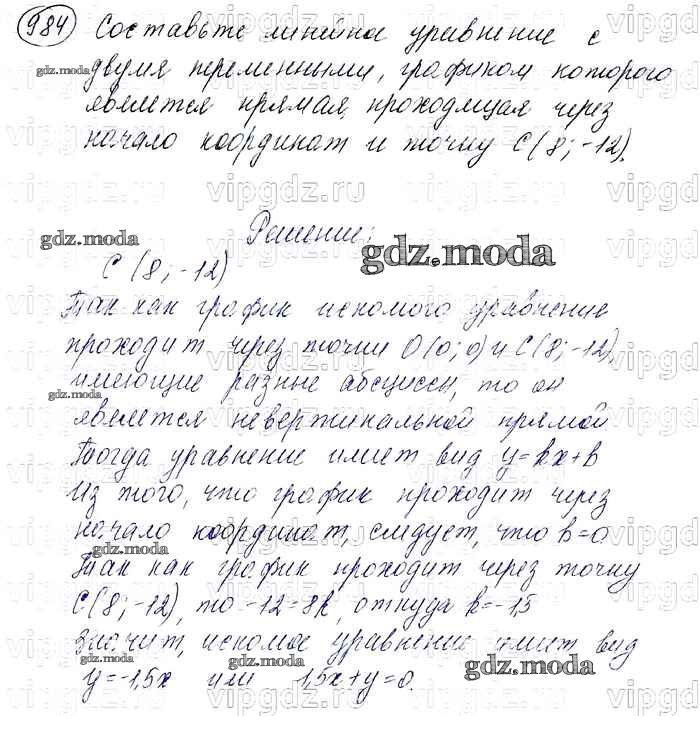 984 Составьте линейное уравнение с
двумя переменными, графиком которого
является прямая, проходящая через
начало координат и точку C(8; -12).
Решение:
C (8; -12)
Так как график искомого уравнение
проходит через точки O(0; 0) и C(8; -12),
имеющие разные абсциссы, то он
является невертикальной прямой
Тогда уравнение имеет вид y=kx+b
Из того, что график проходит через
начало координат, следует, что b=0
Так как график проходит через точку
C(8; -12), то -12=8k, откуда k=-1,5
Значит, искомое уравнение имеет вид
y=-1,5x или 1,5x+y=0.
gdz.moda
gdz.moda
gdz.moda
gdz.moda
gdz.moda
gdz.moda
gdz.moda
gdz.moda
vipgdz.ru